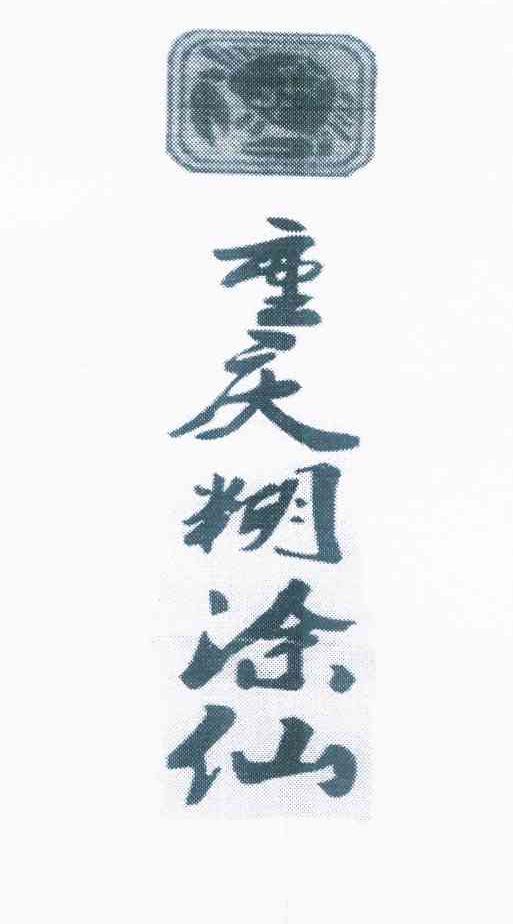 重庆糊涂仙